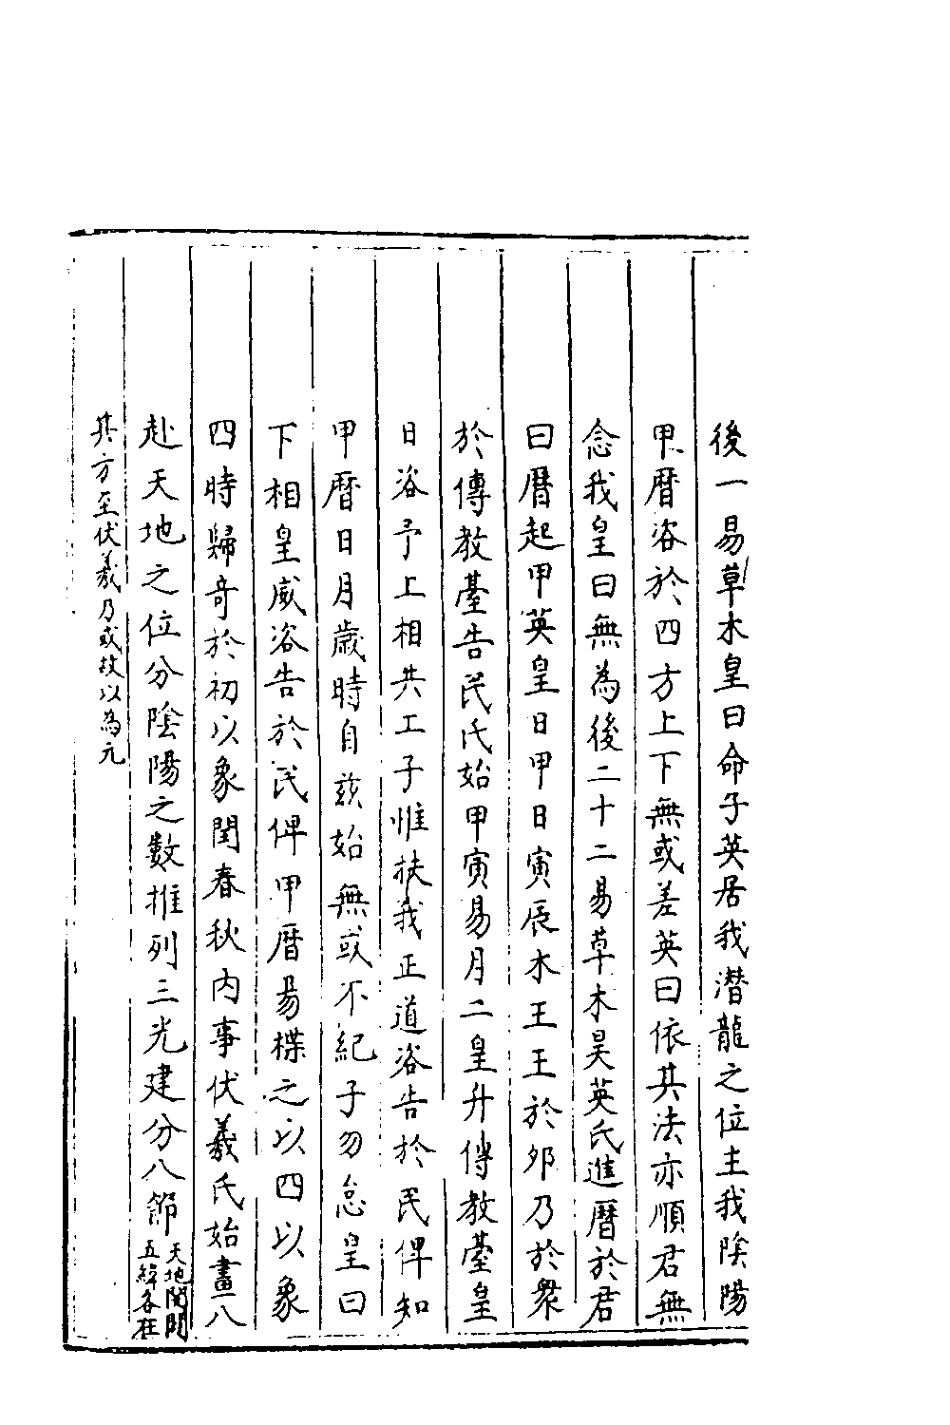 後一易草木皇曰命子英居我潛龍之位主我陰陽
甲曆咨於四方上下無或差英曰依其法亦順君無
念我皇曰無為後二十二易草木昊英氏進曆於君
曰曆起甲英皇日甲日寅辰木王王於夘乃於衆
於傳教臺告民氏始甲寅易月二皇升傳教臺皇
日浴予上相共工子惟扶我正道浴告於民俾知
甲曆日月歲時自玆始無或不紀子勿怠皇曰
下相皇威浴告於民俾甲曆易楪之以四以象
四時歸奇於初以象閏春秋内事伏羲氏始畫八
赴天地之位分陰陽之數推列三光建分八節天地開闢
五緯各在
其方至伏羲乃或故以為元